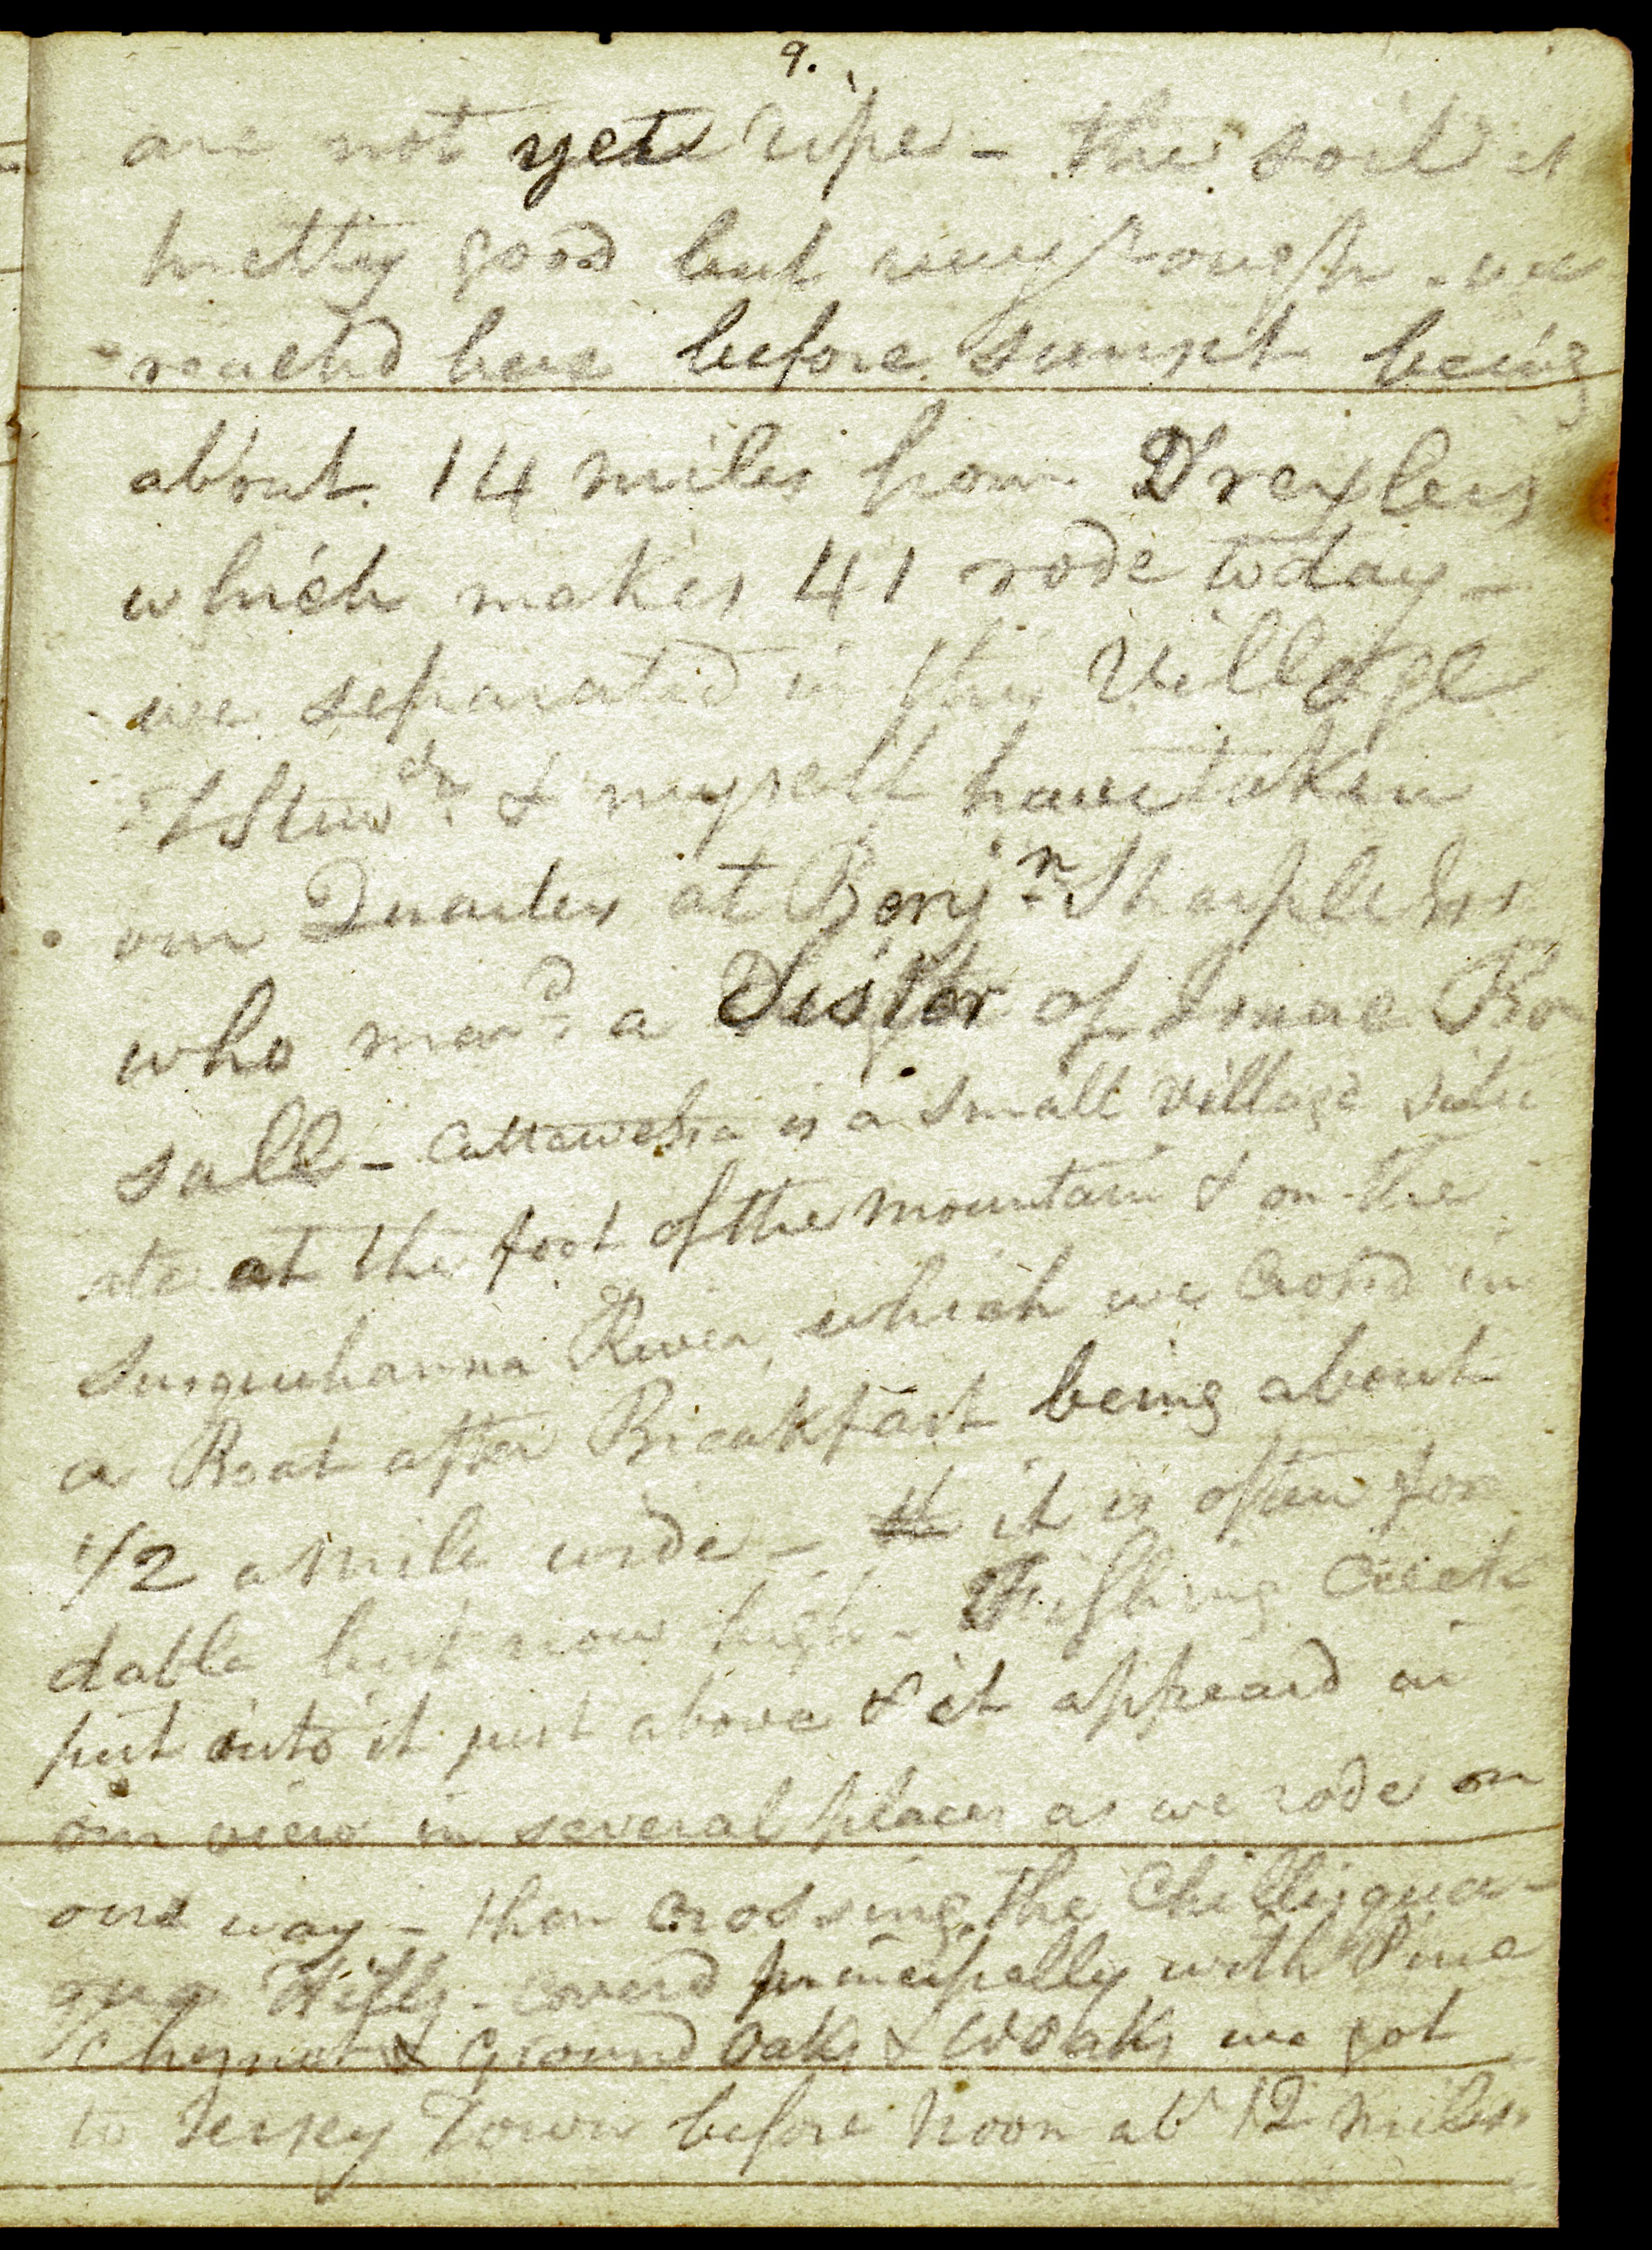 9.
are not yet ripe - the soil is
pretty good but very rough - we
reachd here before sunset being
about 14 miles from Drexlers
which makes 41 rode today -
we separated in this Village
& myself have taken
our Quarters at Benjn Sharpless's
who mard a Sister of Isaac Bo
sall - Cattawessa is a small village situ
ate at the foot of the mountain & on the
Susquehanna River, which we crossd in
a Boat after Breakfast being about
1/2 a mile wide - it is often for
dable but now high - Fishing Creek
put into it just above & it appeard in
our view in several places as we rode on
our way - then crossing the Chillisqua-
qua Hills - coverd principally with Pine
Chesnut & Ground Oaks & W Oaks we got
to Jersey Town before noon abt 12 miles